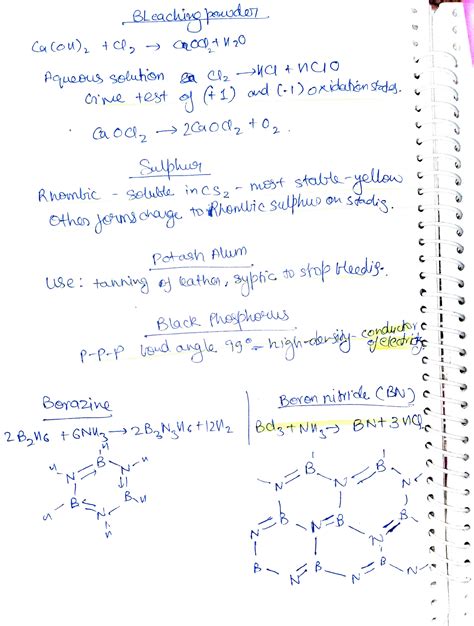 Bleaching powder
Ca(OH)2 + Cl2 → CaOCl2 + H2O
Aqueous solution Cl2 → HCl + HClO
Give test of (+1) and (-1) oxidation states.
CaOCl2 → 2CaOCl2 + O2.
Sulphur
Rhombic - soluble in CS2 - most stable - yellow
Other forms change to Rhombic sulphur on
Potash Alum
Use: tanning of leather, syptic to stop
Black Phosphorus
P-P-P bond angle 99° - high-density - conductor
of electricity
Borazine
2B2H6 + 6NH3 → 2B3N3H6 + 12H2
H H
B
N N
B B
H H
N
H
Boron nitride (BN)
BCl3 + NH3 → BN + 3HCl
B B
N N N
B B B
N N B N
B B B B
N N N